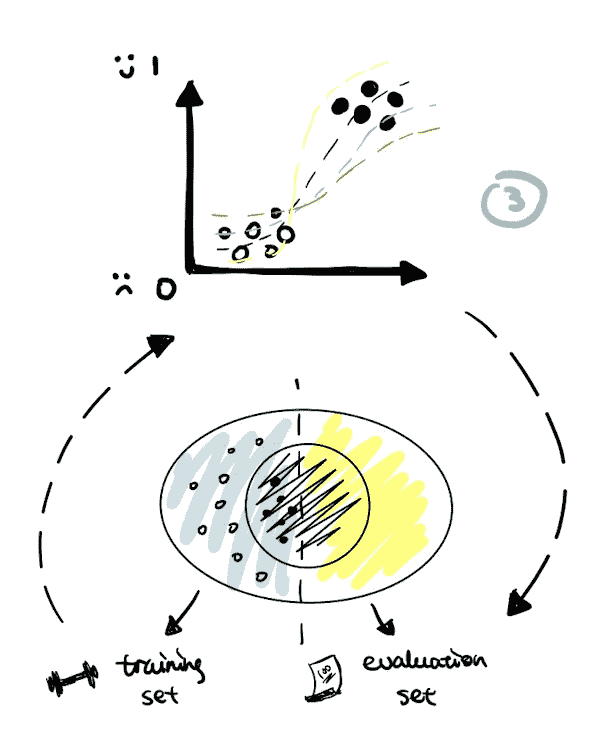 1
3
0
training
set
100
evaluation
set